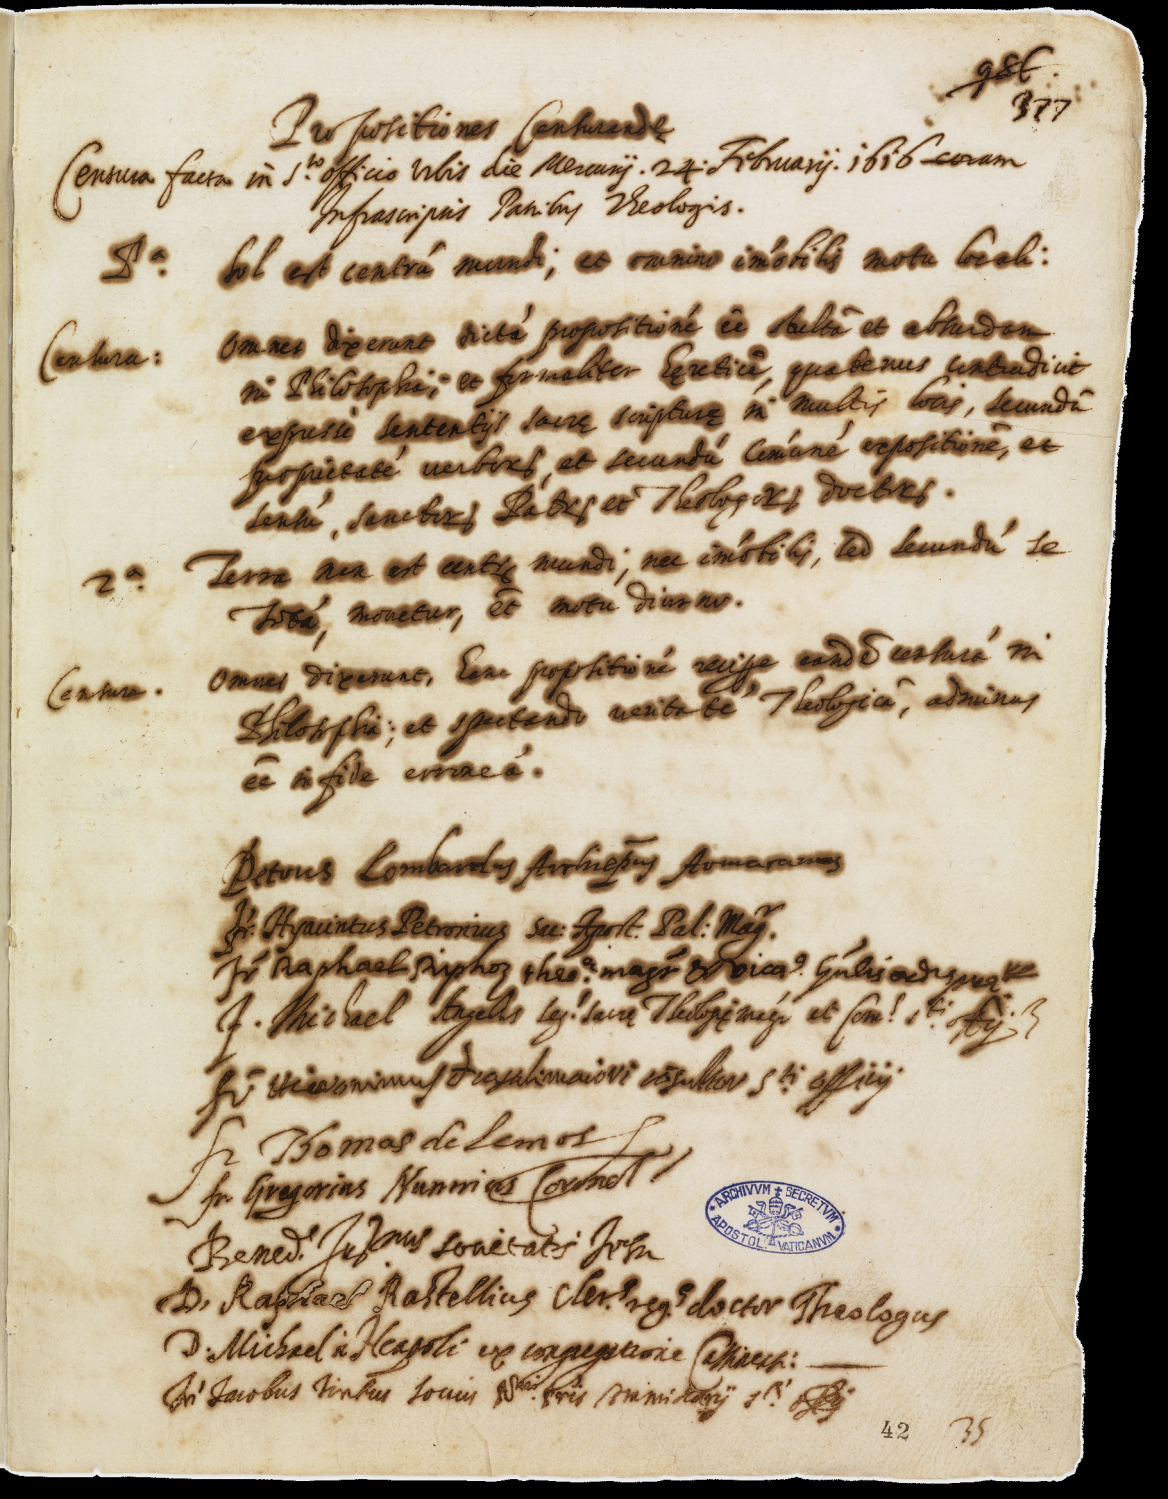 986
377
Propositiones Censurandę
Censura facta in S.to officio Urbis die Mercurij. 24. Februarij. 1616 coram
Infrascriptis Patribus Theologis.
P.a Sol est centrũ mundi; et omnino im̃obilis motu locali:
Censura: omnes dixerunt dictã propositionẽ eẽ stultã et absurdam
in Philosophia; et formaliter hęreticã, quatenus contradicit
expresse sententijs sacrę scripturę in multis locis, secundũ
proprietatẽ verborꝝ, et secundũ com̃unẽ expositionẽ, et
sensũ, sanctorꝝ Patrꝝ et Theologorꝝ doctorꝝ.
2.a Terra non est centrũ mundi, nec im̃obilis, sed secundũ se
totã, movetur, et̃ motu diurno.
Censura. omnes dixerunt, hanc propositionẽ recipe eandẽ censurã in
Philosophia; et spectando veritatẽ Theologicã, adminus
eẽ in fide erroneã.
Petrus Lombardus Archiep̃us Armacanus
fr. Hyacintus Petronius Sac: Apost. Pal: Mag.r
fr. Raphael Riphoz theo.ę mag.r et vica.s g̃nlis ordinis
f. Michael Angelus Seg.s sacrę Theologię mag.r et Com.s s.ti offij.
fr. Hieronimus de casalimaiori cõsultor s.ti officij
fr. Thomas de Lemos
fr. Gregorius Nunnius Coronel
Bened.s Jus.nus societatis Jesu
D. Raphael Rastellius Cler.s reg.s doctor Theologus
D. Michael à Neapoli ex congregatione Cassinen.:
fr. Jacobus Tintus socius s.ti offij
ARCHIVVM SECRETVM
APOSTOL. VATICANVM
42 35